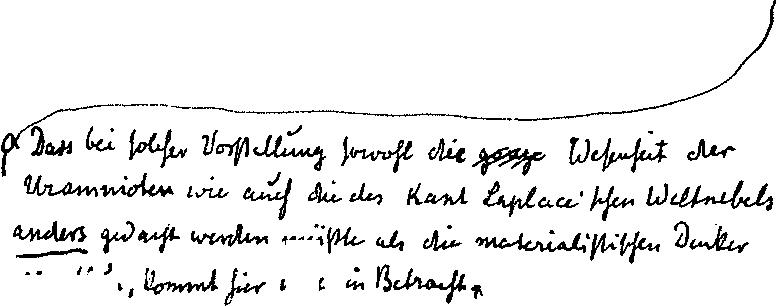 Dass bei solcher Vorstellung sowohl die Wesenheit der
Uramnioten wie auch die des Kant Laplace'schen Weltnebels
anders gedacht werden müßte als die materialistischen Denker
kommt hier in Betracht.